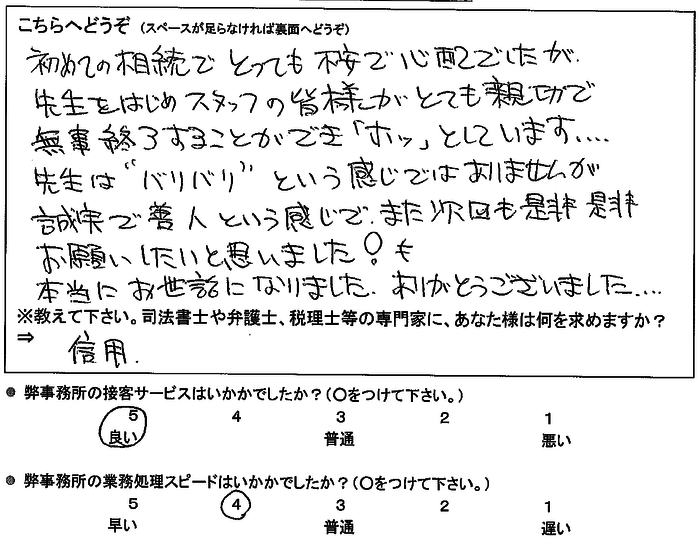 こちらへどうぞ (スペースが足らなければ裏面へどうぞ)
初めての相続でとっても不安で心配でしたが、
先生をはじめスタッフの皆様がとても親切で
無事終了することができ「ホッ」としています....
先生は"バリバリ"という感じではありませんが
誠実で善人という感じで、また次回も是非是非
お願いしたいと思いました!
本当にお世話になりました。ありがとうございました....
※教えて下さい。司法書士や弁護士、税理士等の専門家に、あなた様は何を求めますか?
⇒ 信用.
● 弊事務所の接客サービスはいかがでしたか?(○をつけて下さい。)
5 4 3 2 1
良い 普通 悪い
● 弊事務所の業務処理スピードはいかがでしたか?(○をつけて下さい。)
5 4 3 2 1
早い 普通 遅い